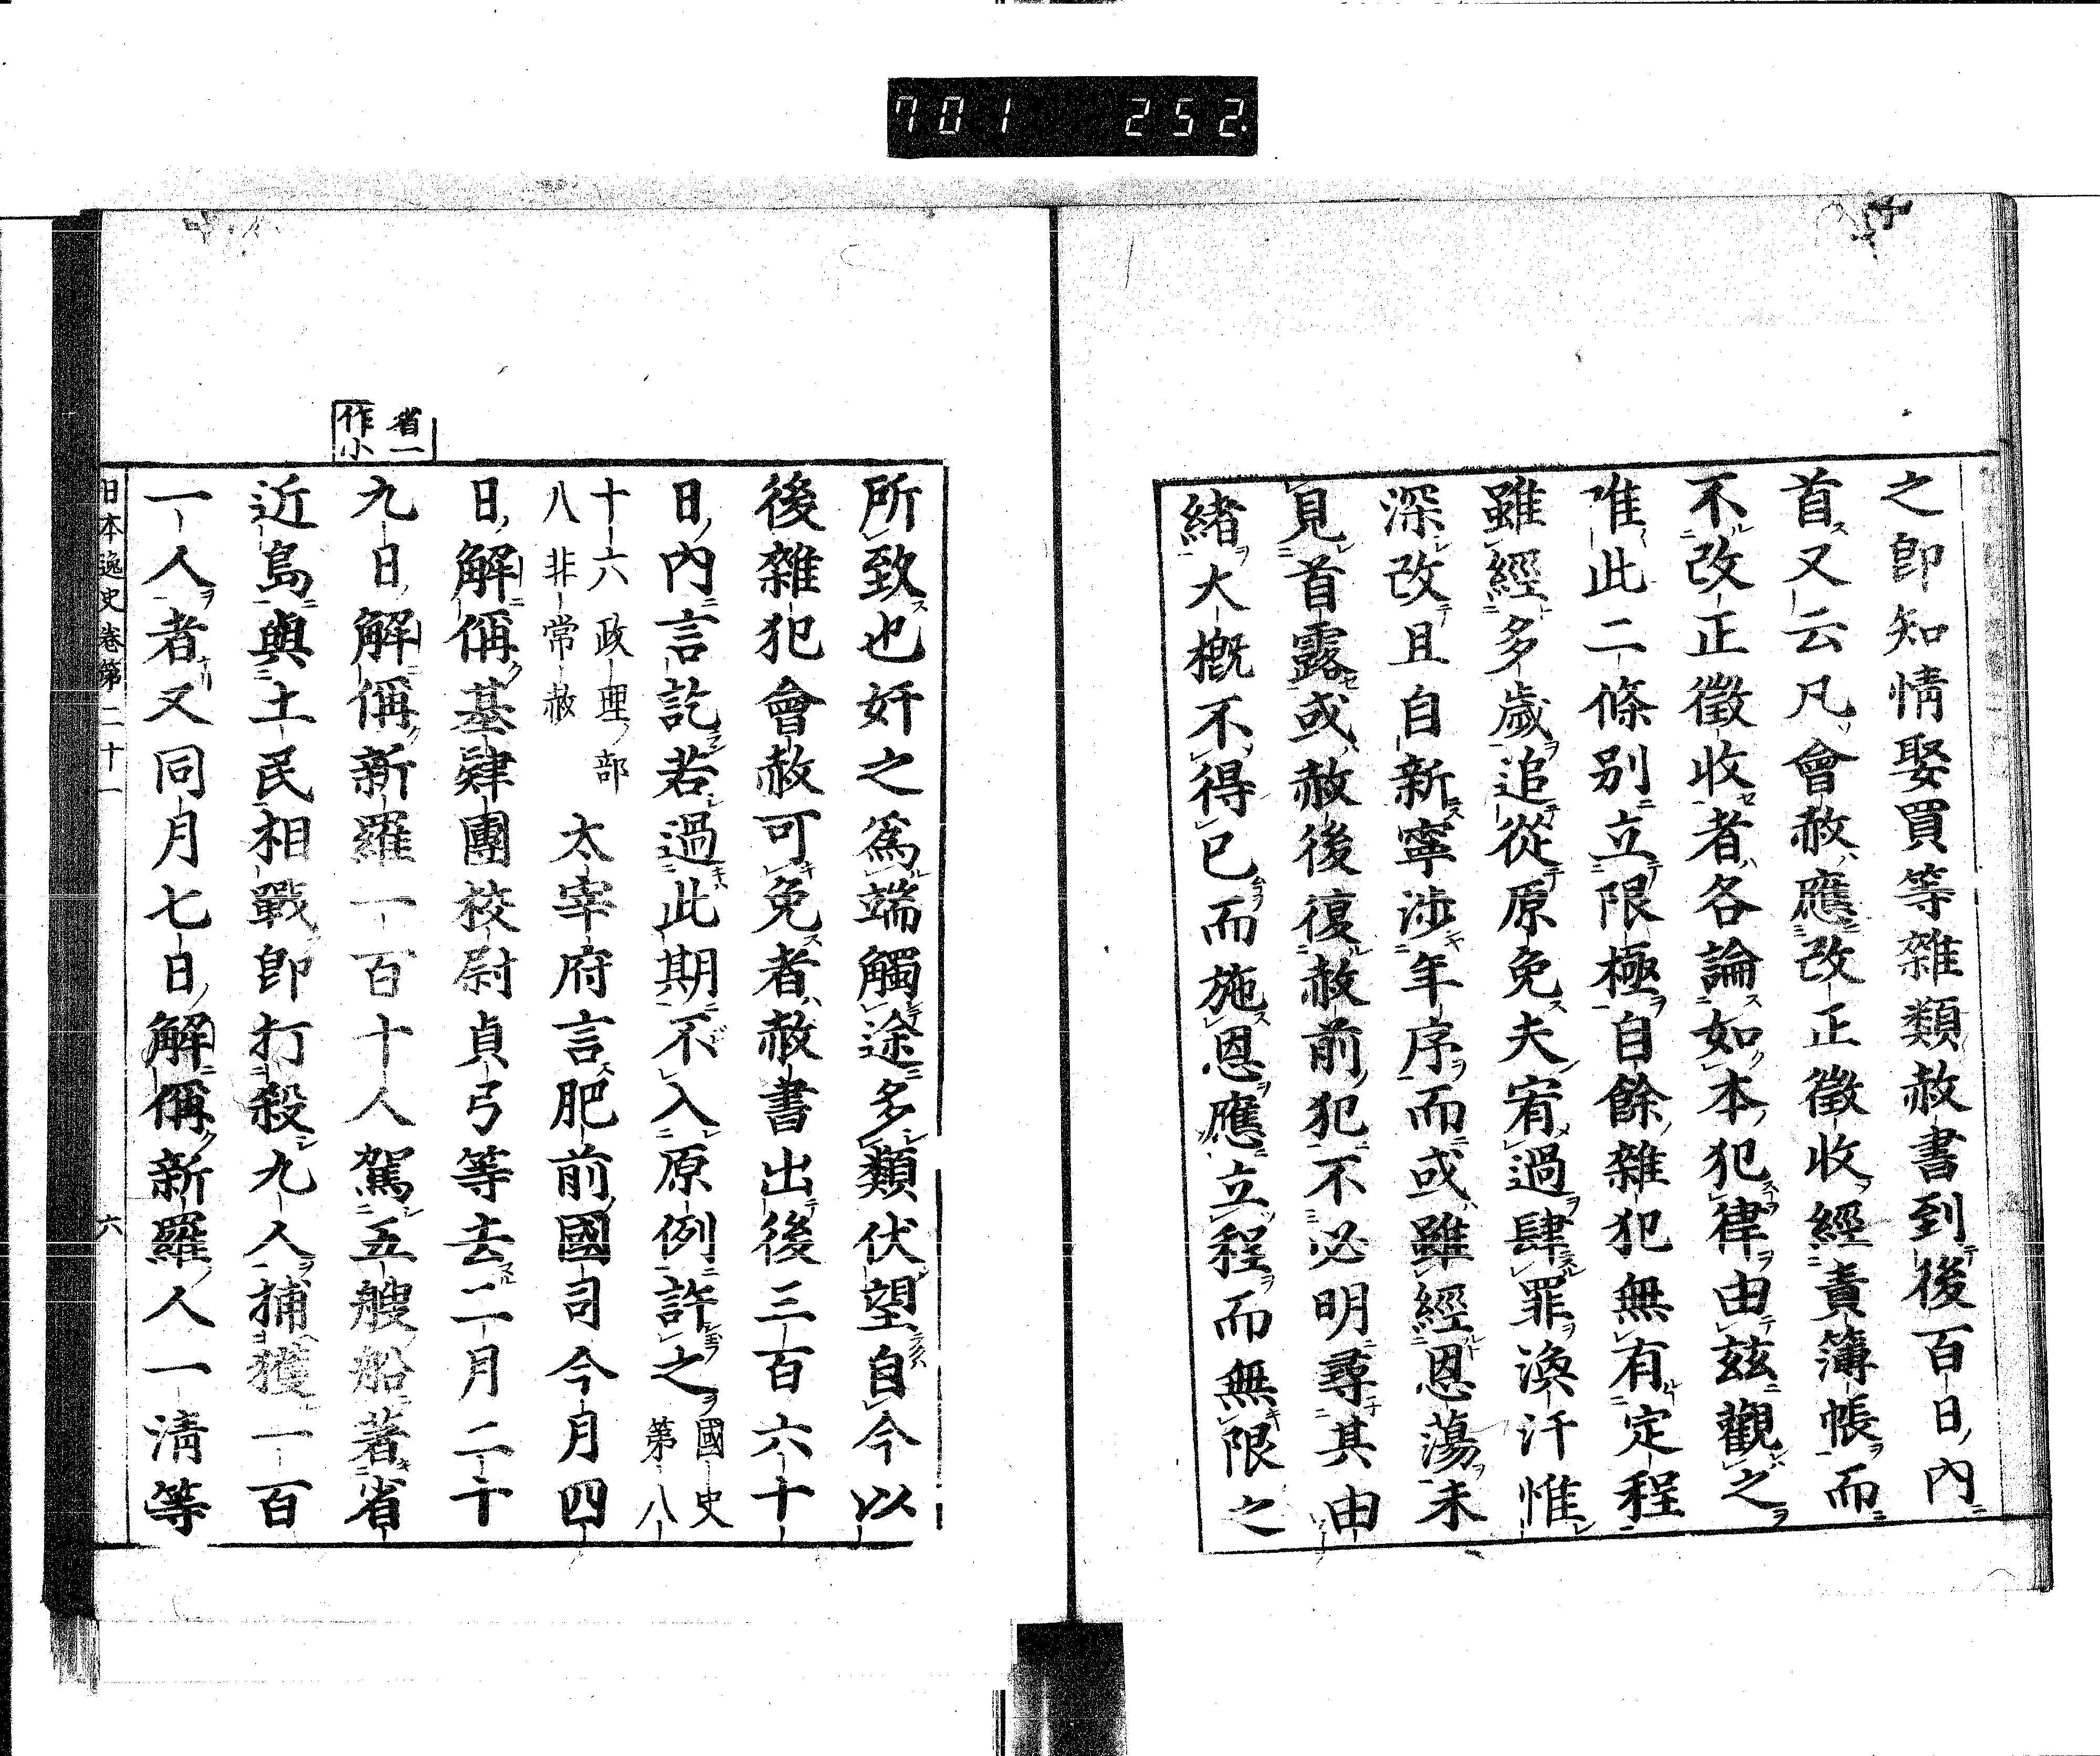 701 252.
之卽知情娶買等雜類赦書到後百日內
首又云凡會赦應改正徵收經責簿帳而
不改正徵收者各論如本犯律由玆觀之
唯此二條别立限極自餘雜犯無有定程
雖經多歲追從原免夫宥過肆罪渙汗惟
深改且自新寧涉年序而或雖經恩蕩未
見首露或赦後復赦前犯不必明尋其由
緒大概不得已而施恩應立程而無限之
所致也奸之爲端觸途多類伏望自今以
後雜犯會赦可免者赦書出後三百六十
日內言訖若過此期不入原例許之國史第八
十六政理部八非常赦 太宰府言肥前國司今月四
日解偁基肄團校尉貞弓等去二月二十
九日解偁新羅一百十人駕五艘船著省
近島與土民相戰卽打殺九人捕獲一百
一人者又同月七日解偁新羅人一淸等
省一作小
日本逸史卷第二十一 六